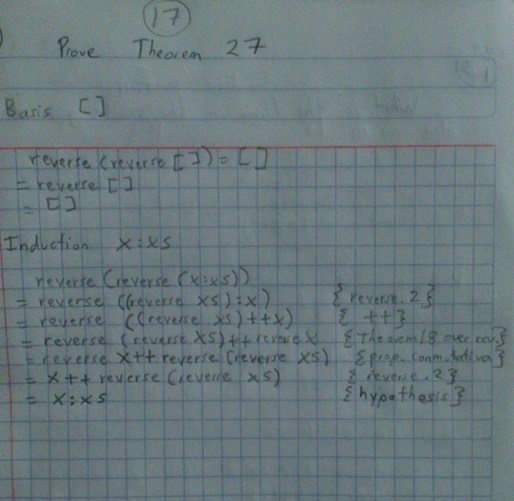 17
Prove Theorem 27
Basis []
reverse (reverse []) = []
= reverse []
= []
Induction x:xs
reverse (reverse (x:xs))
= reverse ((reverse xs):x) {reverse.2}
= reverse ((reverse xs)++x) {++}
= reverse (reverse xs)++reverse x {Theorem 18 over rev.}
= reverse x++reverse (reverse xs) {prop. conmutativa}
= x++reverse (reverse xs) {reverse.2}
= x:xs {hypothesis}